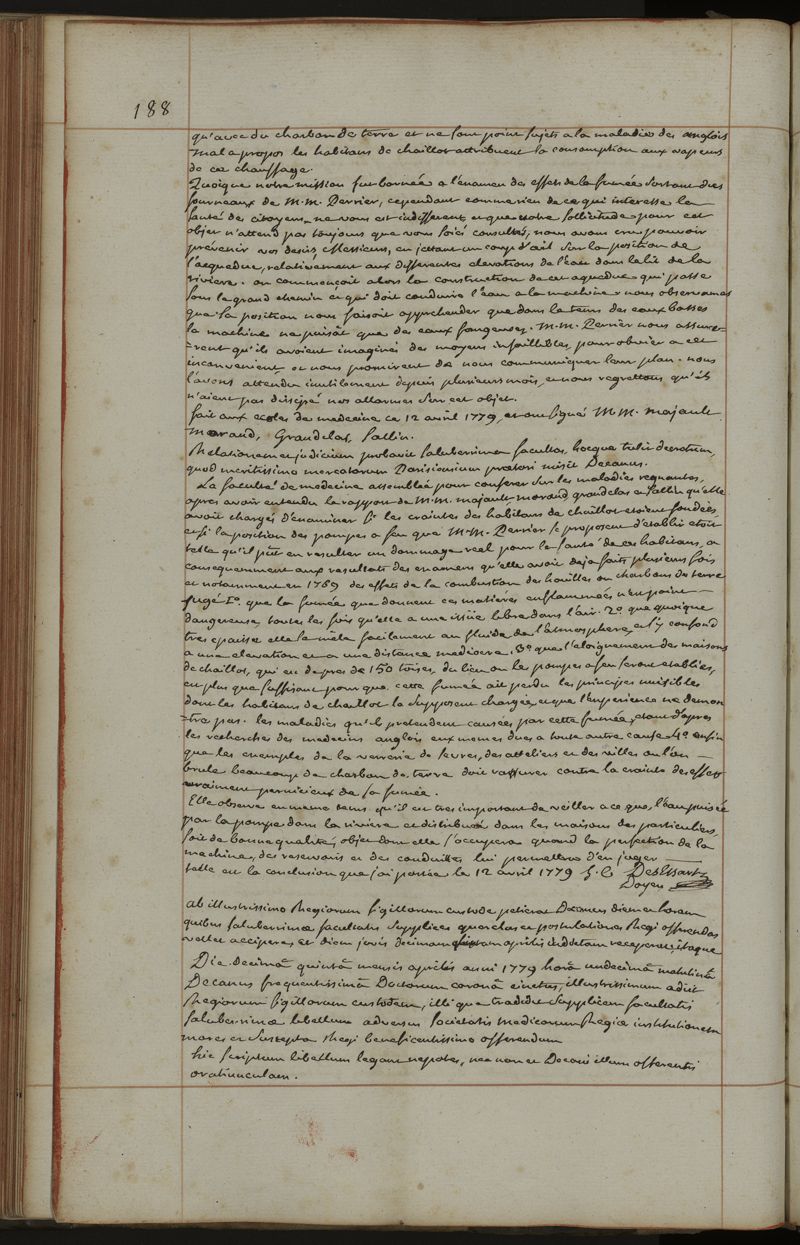 188
qu'avec du charbon de terre et ne sont point sujets a la maladies des anglois
mal a propos les habitans de chaillot attribuent la consomption aux vapeurs
de ce chauffage.
Quoique notre mission fut bornée a l'examen des effets de la fumée sortant des
fourneaux de M.M. Perrier, cependant comme rien de ce qui interesse la
santé des citoyens ne vous est indifferent, et que votre sollicitude pour cet
objet n'attend pas toujours que vous soiés consultés, nous avons cru pouvoir
prévenir vos desirs, Messieurs, en jettant un coup d'œil sur la position de
l'acqueduc, relativement aux differentes elevations de l'eau dans le lit de la
riviere. on commençoit alors la construction de cet aqueduc qui passe
sous le grand chemin et qui doit conduire l'eau a la machine. nous observames
que sa position nous faisoit apprehender que dans le tems des eaux basses
la machine ne puisât que des eaux fangeuses. M.M. Perrier nous assure-
-rent qu'ils avoient imaginés des moyens infaillibles, pour obvier a cet
inconvenient et nous promirent de nous communiquer leur plan. nous
l'avons attendu inutilement depuis plusieurs mois, et nous regrettons qu'ils
n'aient pas dissipé nos allarmes sur cet objet.
fait aux ecoles de medecine ce 12 avril 1779, et ont signé M.M. majault
morand, Grandclas, Sallin.
Relationem et judicium probavit saluberrima facultas, hocque tulit decretum,
quod meritissimo mercatorum Parisiensium praetori misit Decanus.
La faculté de medecine assemblée pour conferer sur les maladies regnantes,
apres avoir entendu le rapport de M.M. majault morand grandclas et sallin qu'elle
avoit chargés d'examiner si les craintes des habitans de chaillot etoient fondées
et si la position des pompes a feu que M.M. Perrier se proposent d'etablir etoit
telle qu'il pût en resulter un dommage reel pour la santé de ces habitans, a
consequemment aux resultats des examens qu'elle avoit deja faits plusieurs fois
et notamment en 1769 des effets de la combustion des houilles ou charbons de terre
jugé 1º. que la fumée que donnent ces matieres enflammées n'est point
dangereuse toutes les fois qu'elle a une issüe libre dans l'air. 2º que quoique
tres epaisse elle se mêle facilement au fluide de l'atmosphere, et s'y confond
a une elevation et a une distance mediocre. 3º que l'eloignement des maisons
de chaillot, qui est de pres de 150 toises, du lieu ou les pompes a feu seront etablies,
est plus que suffisant pour que cette fumée ait perdu les principes nuisibles
dont les habitans de chaillot la supposent chargée, et que l'experience ne demon
-tre pas. les maladies qu'ils pretendent causées par cette fumée, etant d'apres
les recherches des medecins anglois eux memes dues a toute autre cause 4º enfin
que les exemples de la verrerie de sevres, des atteliers et des villes ou l'on
brule beaucoup de charbon de terre doit rassurer contre la crainte des effets
vraiment pernicieux de sa fumée.
Elle observe en meme tems qu'il est tres important de veiller a ce que l'eau puisée
par la pompe dans la riviere et distribuée dans les maisons des particuliers
soit de bonne qualité, objet dont elle s'occupera quand la perfection de la
machine, des reservoirs et des conduites lui permettra d'en juger
telle est la conclusion que j'ai portée le 12 avril 1779 J. C. DesEssartz
Doyen
ab illustrissimo Regiorum sigillorum custode petierat Decanus diem et horam
quibus saluberrimae facultatis supplices querelas et postulationes Regi offerendas
vellet accipere, et diem jovis decimam quintam aprilis indictam receperat, itaque
Die Decimâ quintâ mensis aprilis anni 1779 horâ undecimâ matutinâ
Decanus frequentissimâ Doctorum coronâ cinctus, illustrissimum adiit
Regiorum sigillorum custodem, illique tradidit supplicem facultatis
saluberrimae libellum adversus societatis medicorum Regiae institutionem
mores et suscepta Regi beneficentissimo offerendum
hic scriptum libellum legant nepotes, nec non et Decani illum offerentis
oratiunculam.